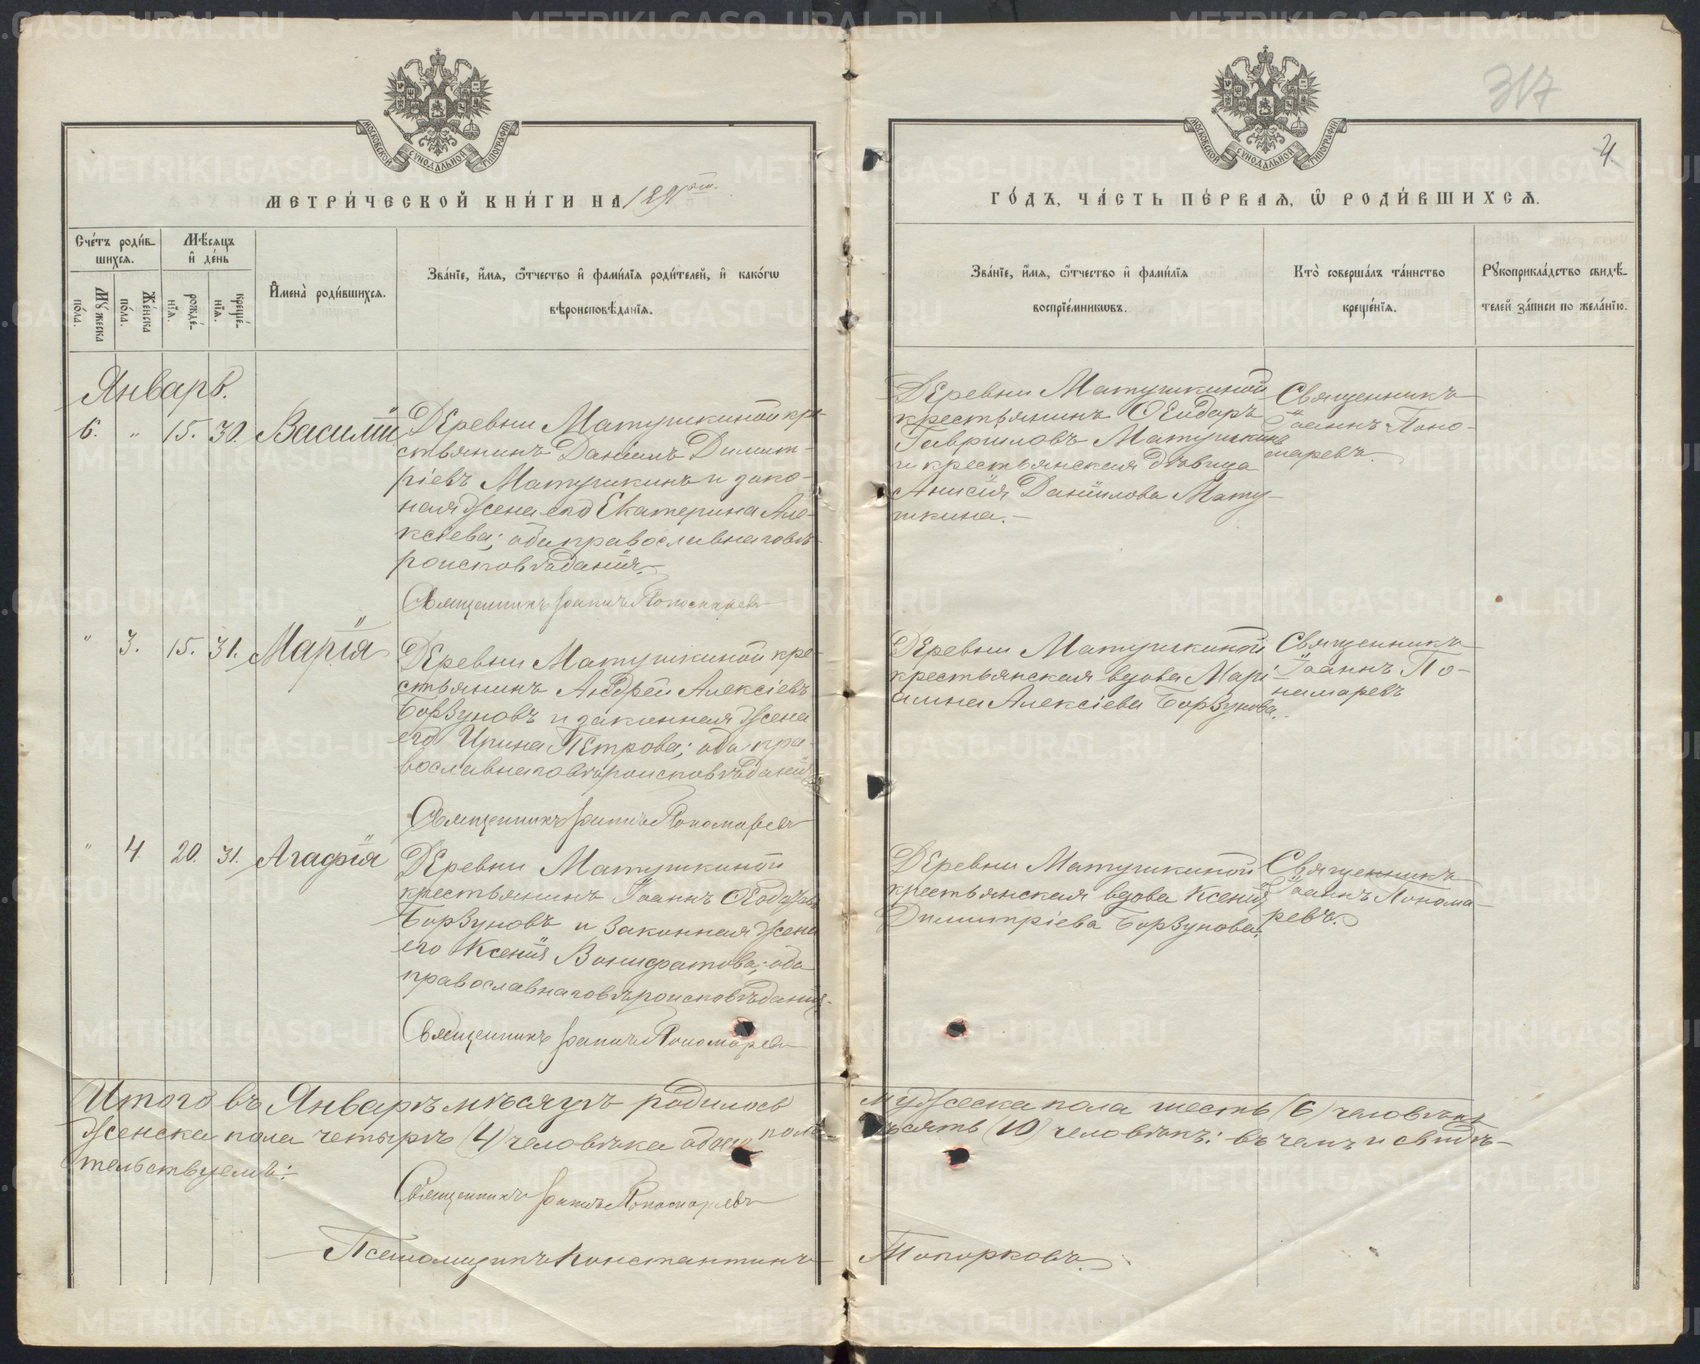 317
4
МОСКОВСКОЙ СѴНОДАЛЬНОЙ ТИПОГРАФІИ
МОСКОВСКОЙ СѴНОДАЛЬНОЙ ТИПОГРАФІИ
МЕТРИ́ЧЕСКОЙ КНИ́ГИ НА 1891
ГО́ДЪ, ЧА́СТЬ ПЕ́РВАѦ, Ѽ РОДИ́ВШИХСѦ.
Сче́тъ роди́в-
шихся.
Мѣ́сяцъ
и҆ де́нь
Му́жеска по́ла.
Же́нска по́ла.
рожде́-нїя.
креще́-нїя.
И҆мена̀ роди́вшихся.
Зва́нїе, и҆́мя, ѻ҆́тчество и҆ фами́лїя роди́телей, и҆ како́гѡ
вѣроисповѣ́данїя.
Зва́нїе, и҆́мя, ѻ҆́тчество и҆ фами́лїя
воспрїе́мникѡвъ.
Кто̀ соверша́лъ та́инство
креще́нїя.
Рꙋкоприкла́дство свидѣ́-
телей за́писи по жела́нїю.
Январь.
6. " 15. 30. Василій
Деревни Матушкиной кре-
стьянинъ Даніилъ Димит-
ріевъ Матушкинъ и зако-
ная жена его Екатерина Але-
ксіева; оба православнаго вѣ-
роисповѣданія.
Священникъ Іоаннъ Пономаревъ
Деревни Матушкиной
крестьянинъ Ѳеодоръ
Гавриловъ Матушкинъ
и крестьянская дѣвица
Анисія Даніилова Мату-
шкина.
Священникъ
Іоаннъ Поно-
маревъ.
" 3. 15. 31. Марія
Деревни Матушкиной кре-
стьянинъ Андрей Алексіевъ
Борзуновъ и законная жена
его Ирина Петрова; оба пра-
вославнаго вѣроисповѣданія
Священникъ Іоаннъ Пономаревъ
Деревни Матушкиной
крестьянская вдова Марі-
амна Алексіева Борзунова.
Священникъ
Іоаннъ По-
намаревъ
" 4 20. 31. Агафія
Деревни Матушкиной
крестьянинъ Іоаннъ
Борзуновъ и законная жена
его Ксенія Вонифатова; оба
православнаго вѣроисповѣданія.
Священникъ Іоаннъ Пономаревъ
Деревни Матушкиной
крестьянская вдова Ксенія
Димитріева Борзунова.
Священникъ
Іоаннъ Понома-
ревъ.
Итого въ Январѣ мѣсяцѣ родилось мужеска пола шесть (6) человѣкъ
женска пола четыре (4) человѣка обоего пола десять (10) человѣкъ: въ чемъ и свидѣ-
тельствуемъ:
Священникъ Іоаннъ Пономаревъ
Псаломщикъ Константинъ Топорковъ.
METRIKI.GASO-URAL.RU